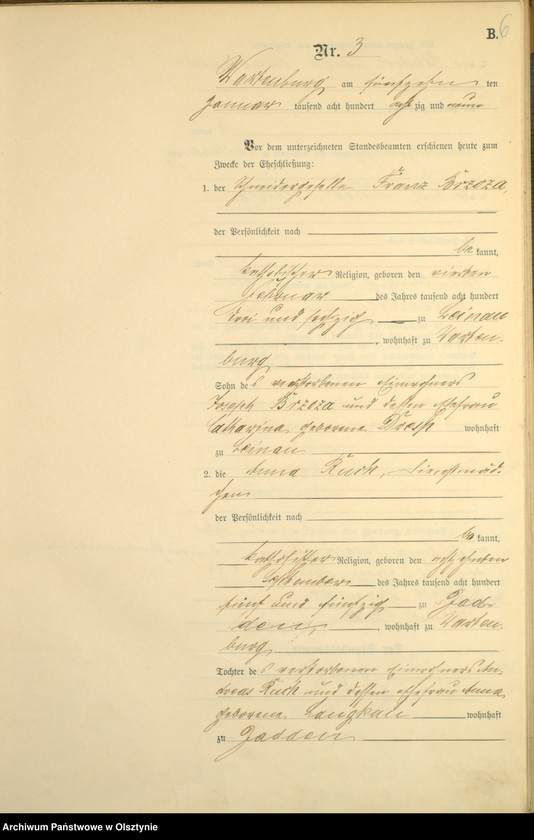 B.
6
Nr. 3
Wartenburg am fünfzehn ten
Januar tausend acht hundert achtzig und neun
Vor dem unterzeichneten Standesbeamten erschienen heute zum
Zwecke der Eheschließung:
1. der Schneidergeselle Franz Brzoza,
der Persönlichkeit nach
be kannt,
katholischer Religion, geboren den vierten
Februar des Jahres tausend acht hundert
drei und sechzig zu Leinau
, wohnhaft zu Warten-
burg
Sohn des verstorbenen Einwohners
Joseph Brzoza und dessen Ehefrau
Catharina geborene wohnhaft
zu Leinau
2. die Anna Ruch, Dienstmäd-
chen
der Persönlichkeit nach
be kannt,
katholischer Religion, geboren den
September des Jahres tausend acht hundert
fünf und fünfzig zu Gad-
den, wohnhaft zu Warten-
burg
Tochter des verstorbenen Einwohners An-
dreas Ruch und dessen Ehefrau Anna
geborene Langkau wohnhaft
zu Gadden
Archiwum Państwowe w Olsztynie